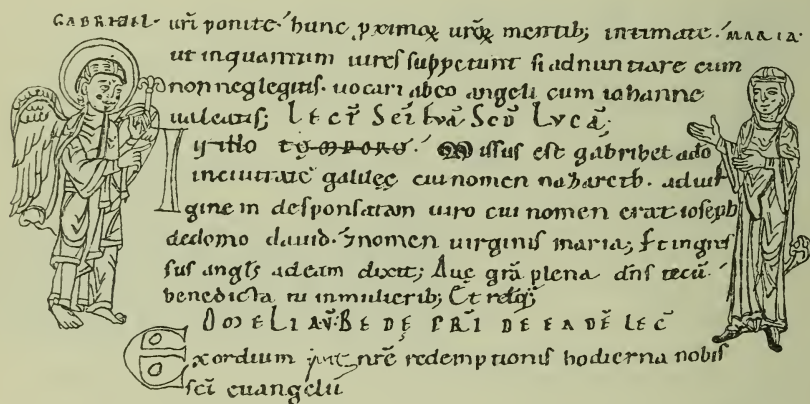 GABRIHEL·
MARIA·
urī ponite· hunc pximoꝝ urōꝝ mentib; intimate·
ut inquantum uires suppetunt si adnuntiare eum
non neglegitis· uocari abeo angeli cum iohanne
ualeatis; LECT̄ SCĪ EVĀ SCD̄ LVCĀ;
IN illo TEMPORE· Missus est gabrihel ado
inciuitatē galileę cui nomen nazareth· aduir
ginem desponsatam uiro cui nomen erat ioseph
dedomo dauid· ⁊nomen uirginis maria; Et ingres
sus angls̄ adeam dixit; Aue grā plena dn̄s tecū·
benedicta tu inmulierib; Et relq̄;
OMELIA VB̄ BEDĘ PRI DE EADĒ LEC
Exordium nrē redemptionis hodierna nobis
scī euangelii